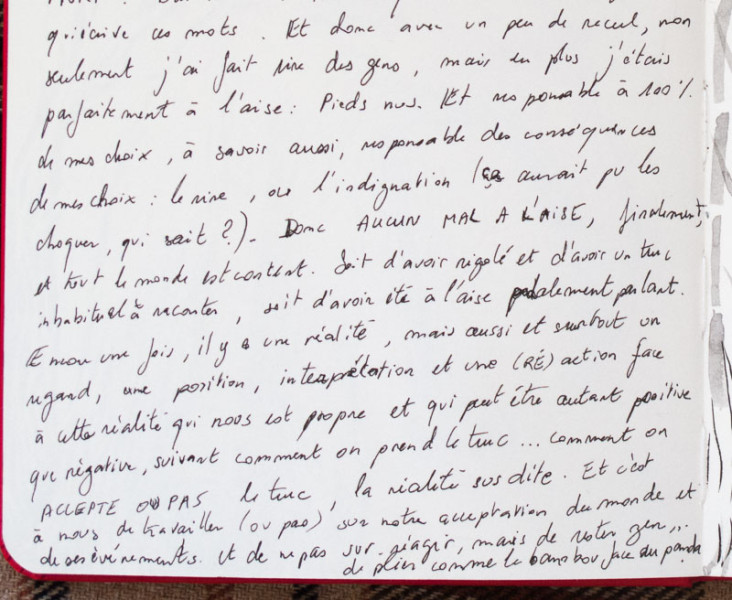 qui écrive ces mots. Et donc avec un peu de recul, non
seulement j'ai fait rire des gens, mais en plus j'étais
parfaitement à l'aise : Pieds nus. Et responsable à 100%.
de mes choix, à savoir aussi, responsable des conséquences
de mes choix : le rire, ou l'indignation (ça aurait pu les
choquer, qui sait ?). Donc AUCUN MAL A L'AISE, finalement,
et tout le monde est content. Soit d'avoir rigolé et d'avoir un truc
inhabituel à raconter, soit d'avoir été à l'aise pédalement parlant.
Encore une fois, il y a une réalité, mais aussi et surtout un
regard, une position, interprétation et une (RÉ)action face
à cette réalité qui nous est propre et qui peut être autant positive
que négative, suivant comment on prend le truc... comment on
ACCEPTE OU PAS le truc, la réalité sus dite. Et c'est
à nous de travailler (ou pas) sur notre acceptation du monde et
de ses événements. et de ne pas sur-réagir, mais de rester zen...
de plier comme le bambou face au panda